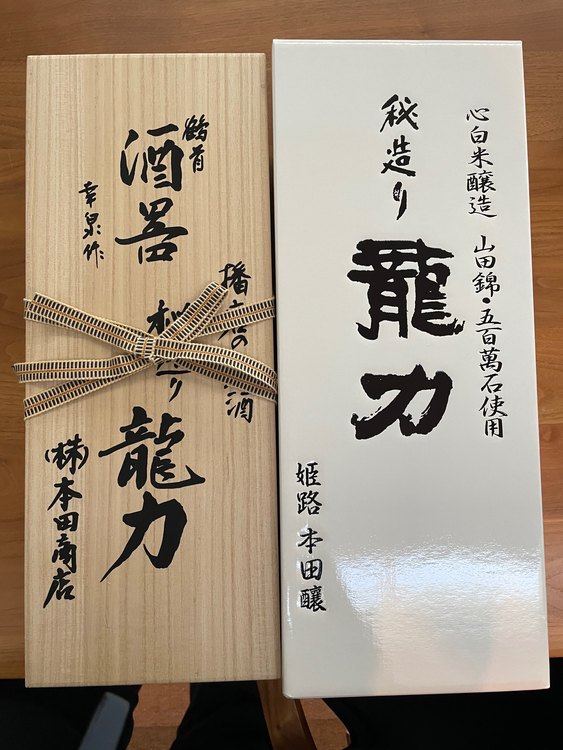 鶴首
酒器
幸泉作
播
の
酒
秘造り
龍力
(株)本田商店
心白米醸造 山田錦・五百萬石使用
秘造り
龍力
姫路 本田醸